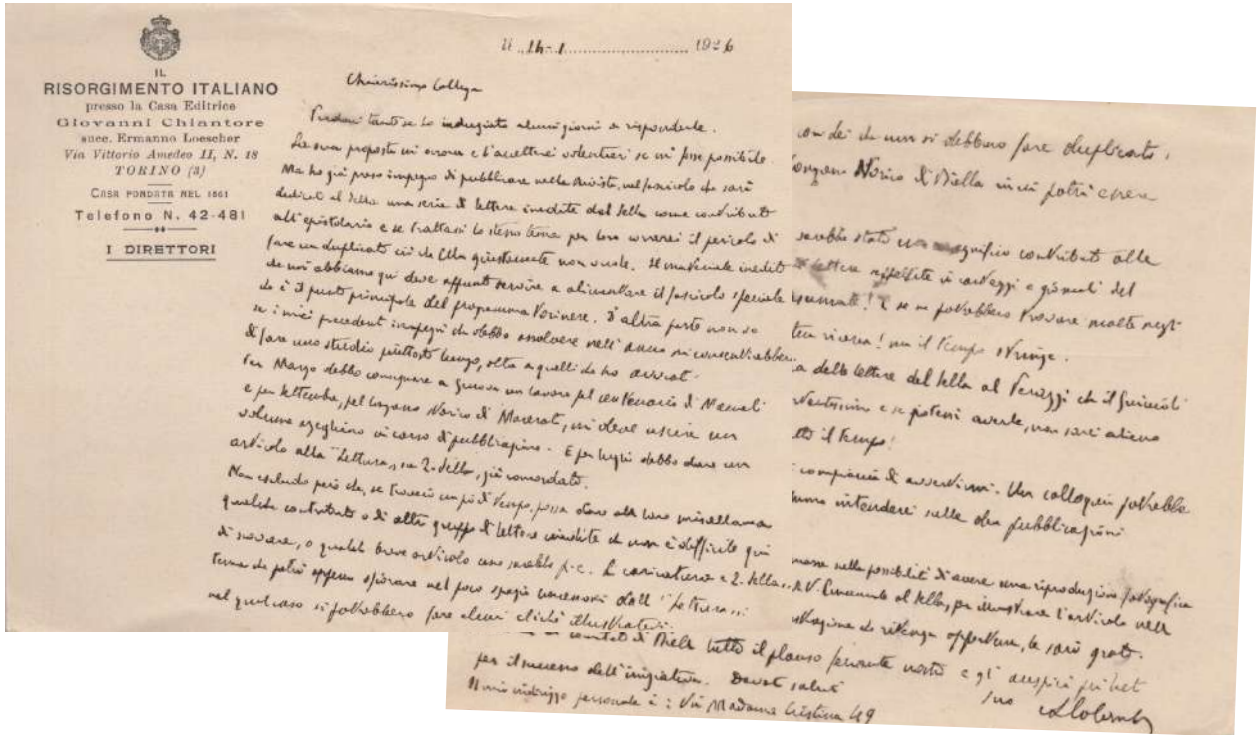 IL
RISORGIMENTO ITALIANO
presso la Casa Editrice
Giovanni Chiantore
succ. Ermanno Loescher
Via Vittorio Amedeo II, N. 18
TORINO (3)
CASA FONDATA NEL 1861
Telefono N. 42-481
I DIRETTORI
li 14-1 1926
Chiarissimo Collega
Perdoni tanto se ho indugiato alcuni giorni a risponderle.
La sua proposta mi onora e l'accetterei volentieri se mi fosse possibile.
Ma ho già preso impegno di pubblicare nella Rivista, nel fascicolo che sarà
dedicato al Sella una serie di lettere inedite del Sella come contributo
all'epistolario e se trattassi lo stesso tema per loro correrei il pericolo di
fare un duplicato ciò che Ella giustamente non vuole. Il materiale inedito
che noi abbiamo qui deve appunto servire a alimentare il fascicolo speciale
che è il punto principale del programma Torinese. D'altra parte non so
se i miei precedenti impegni che debbo assolvere nell'anno mi consentirebbero
di fare uno studio piuttosto lungo, oltre a quelli che ho avviati.
Per Marzo debbo consegnare a Genova un lavoro pel centenario di Mameli
e per settembre, pel Congresso Storico di Macerata, mi deve uscire un
volume in corso di pubblicazione. E per luglio debbo dare un
articolo alla "Lettura" su Q. Sella, già concordato.
Non escludo però che, se troverò un pò di tempo, possa dare alla loro miscellanea
qualche contributo o di altro gruppo di lettere inedite che non è difficile qui
di trovare, o qualche breve articolo come sarebbe p.e. La caricatura e Q. Sella,
tema che potrò appena sfiorare nel poco spazio concessomi dall' "Lettura"
nel qual caso si potrebbero fare alcuni clichè illustrativi.
con dei che non si debbono fare duplicati.
Congresso Storico di Biella in cui potrò essere
sarebbe stato un magnifico contributo alle
lettere in carteggi e giornali del
! E se ne potrebbero trovare molte negli
ricerca! ma il tempo stringe.
delle lettere del Sella al Peruzzi che il
e se potessi averle, non sarei alieno
il tempo!
compiacerà di avvertirmi. Un colloquio potrebbe
intenderci sulle due pubblicazioni
nella possibilità di avere una riproduzione fotografica
V. Emanuele al Sella, per illustrare l'articolo nella
che ritenga opportuna, le sarò grato.
comitato di Biella tutto il plauso
per il successo dell'iniziativa. Devoti saluti
suo AColombo
Il mio indirizzo personale è: Via Madama Cristina 49